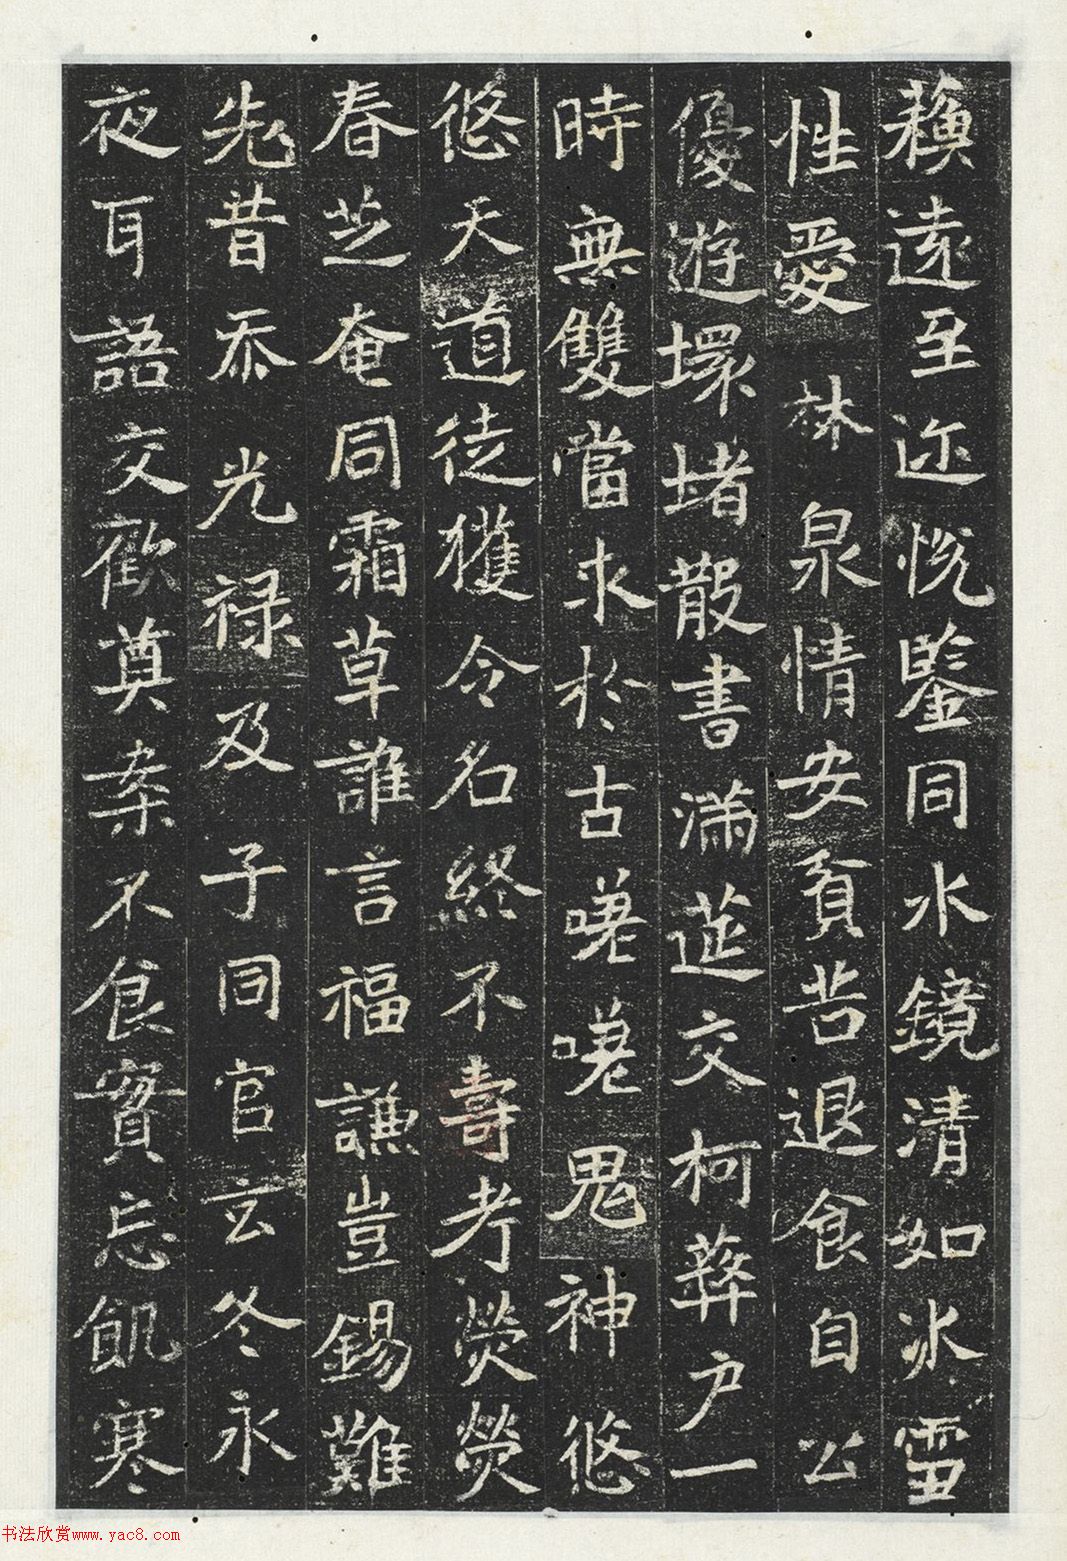 遠至迩恱鑒同水鏡清如氷雪
性愛林泉情安貧苦退食自公
優遊環堵散書滿莚交柯戶一
時無雙當求於古嗟嗟鬼神悠
悠天道徒獲令名終不壽考熒熒
春芝奄同霜草誰言福謙豈錫難
先昔忝光禄及子同官玄冬永
夜耳語交歡奠案不食實忘飢寒
书法欣赏www.yac8.com